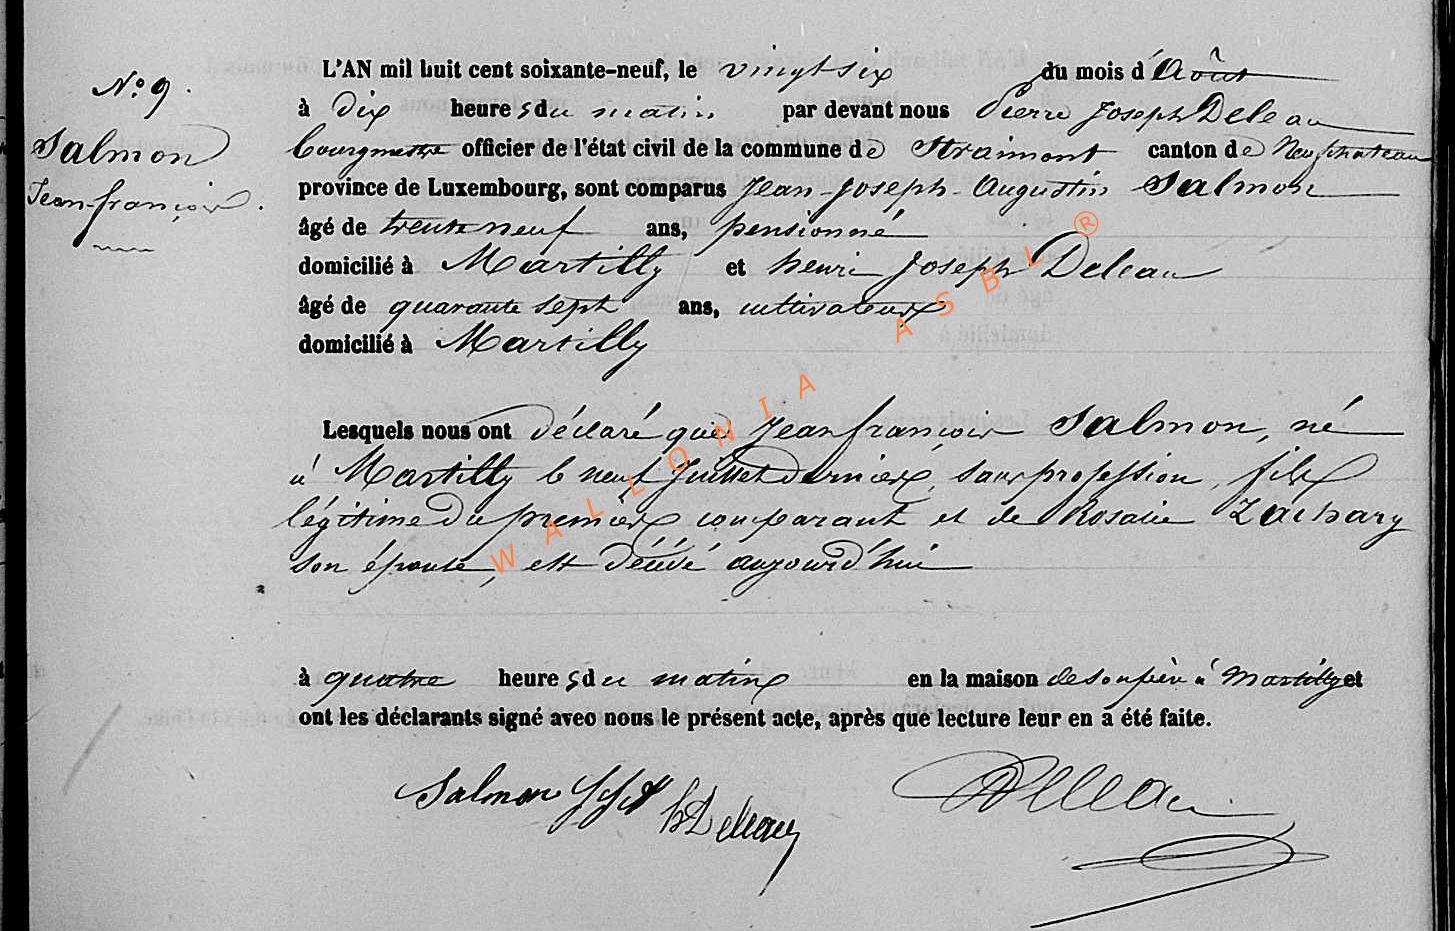 N° 9.
Salmon
Jean françois.
L'AN mil huit cent soixante-neuf, le vingt six du mois d'Août
à dix heures du matin par devant nous Pierre Joseph Deleau
bourgmestre officier de l'état civil de la commune de Straimont canton de Neufchateau
province de Luxembourg, sont comparus Jean-Joseph-Augustin Salmon
âgé de trente neuf ans, pensionné
domicilié à Martilly et henri Joseph Deleau
âgé de quarante sept ans, cultivateurs
domicilié à Martilly
Lesquels nous ont déclaré que Jean françois Salmon, né
à Martilly le neuf Juillet dernier, sans profession, fils
légitime du premier comparant et de Rosalie Zachary
son épouse, est décédé aujourd'hui
à quatre heures du matin en la maison de son père à Martilly et
ont les déclarants signé avec nous le présent acte, après que lecture leur en a été faite.
Salmon JJA hJDeleau Deleau
WALLONIA ASBL ®